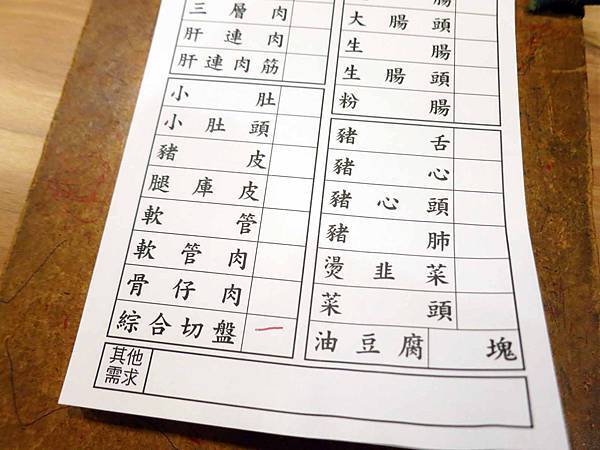 三層肉
肝連肉
肝連肉筋
小肚
小肚頭
豬皮
腿庫皮
軟管
軟管肉
骨仔肉
綜合切盤 一
腸
大腸頭
生腸
生腸頭
粉腸
豬舌
豬心
豬心頭
豬肺
燙韭菜
菜頭
油豆腐 塊
其他
需求